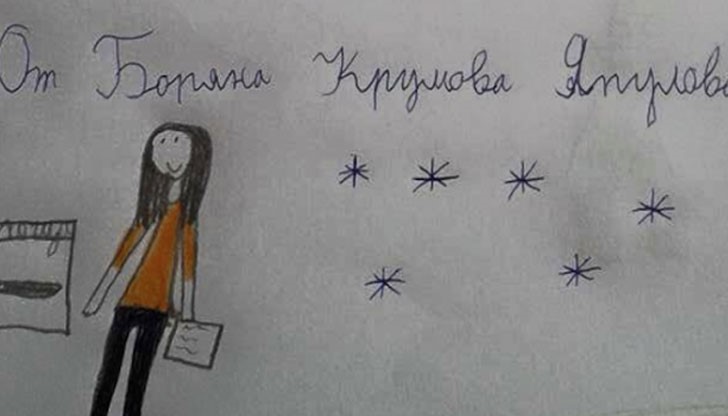 От Боряна Крумова Япулова